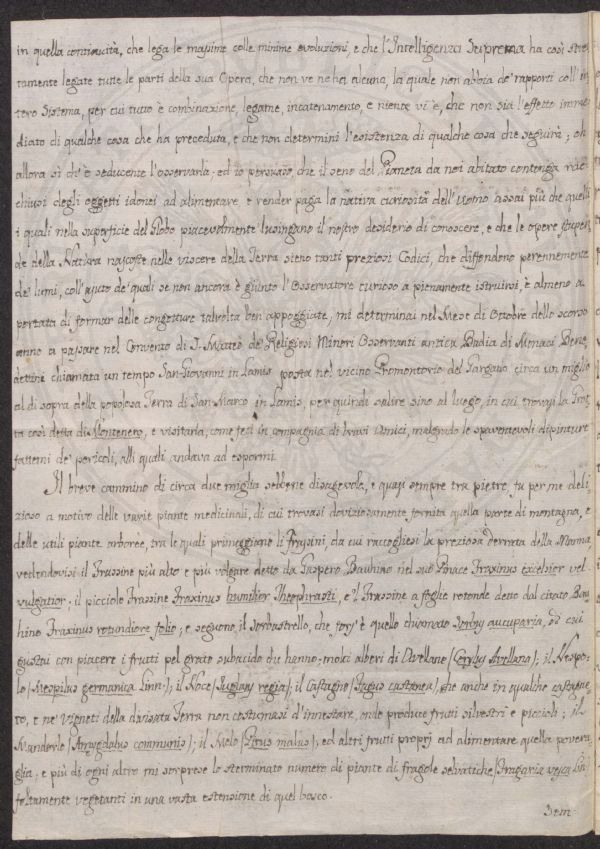 in quella continuità, che lega le massime colle minime evoluzioni, e che l'Intelligenza Suprema ha così stret
tamente legate tutte le parti della sua Opera, che non ve ne ha alcuna, la quale non abbia de' rapporti coll'in
tero Sistema, per cui tutto è combinazione, legame, incatenamento, e niente vi è, che non sia l'effetto imme
diato di qualche cosa che ha preceduta, e che non determini l'esistenza di qualche cosa che seguirà; oh
allora sì ch'è seducente l'osservarla; ed io persuaso, che il seno del Pianeta da noi abitato contenga rac
chiusi degli oggetti idonei ad alimentare, e render paga la nativa curiosità dell'Uomo assai più che quelli
i quali nella superficie del Globo piacevolmente lusingano il nostro desiderio di conoscere, e che le opere stupen
de della Natura nascoste nelle viscere della Terra sieno tanti preziosi Codici, che diffondono perennemente
de' lumi, coll'ajuto de' quali se non ancora è giunto l'Osservatore curioso a pienamente istruirsi, è almeno a
portata di formar delle congetture talvolta ben appoggiate, mi determinai nel Mese di Ottobre dello scorso
anno a passare nel Convento di S. Matteo de' Religiosi Minori Osservanti antica Badia di Monaci Bene
dettini chiamata un tempo San Giovanni in Lamis posta nel vicino Promontorio del Gargano circa un miglio
al di sopra della popolosa Terra di San Marco in Lamis, per quindi salire sino al luogo, in cui trovasi la Grot
ta così detta di Montenero, e visitarla, come feci in compagnia di bravi Amici, malgrado le spaventevoli dipinture
fattemi de' pericoli, alli quali andava ad espormi.
Il breve cammino di circa due miglia sebbene disagevole, e quasi sempre tra pietre, fu per me deli
zioso a motivo delle varie piante medicinali, di cui trovasi doviziosamente fornita quella parte di montagna, e
delle utili piante arboree, tra le quali primeggiano li Frassini, da cui raccogliesi la preziosa derrata della Manna,
vedendovisi il Frassine più alto e più volgare detto da Gaspero Bauhino nel suo Pinace Fraxinus excelsior vel
vulgatior; il picciolo Frassine Fraxinus humilior Theophrasti, e 'l Frassine a foglie rotonde detto dal citato Bau
hino Fraxinus rotundiore folio; e seguono il Sorbastrello, che fors' è quello chiamato Sorbus aucuparia, di cui
gustai con piacere i frutti pel grato subacido che hanno; molti alberi di Avellane (Corylus Avellana); il Nespo
lo (Mespilus germanica Linn.); il Noce (Juglans regia); il Castagno (Fagus castanea), che anche in qualche castagne
to, e ne' Vigneti della divisata Terra non costumasi d'innestare, onde produce frutti silvestri e piccioli; il
Mandorlo (Amygdalus communis); il Melo (Pirus malus), ed altri frutti proprj ad alimentare quella povera
glia; e più di ogni altro mi sorprese lo sterminato numero di piante di fragole selvatiche (Fragaria vesca Lin)
foltamente vegetanti in una vasta estensione di quel bosco.